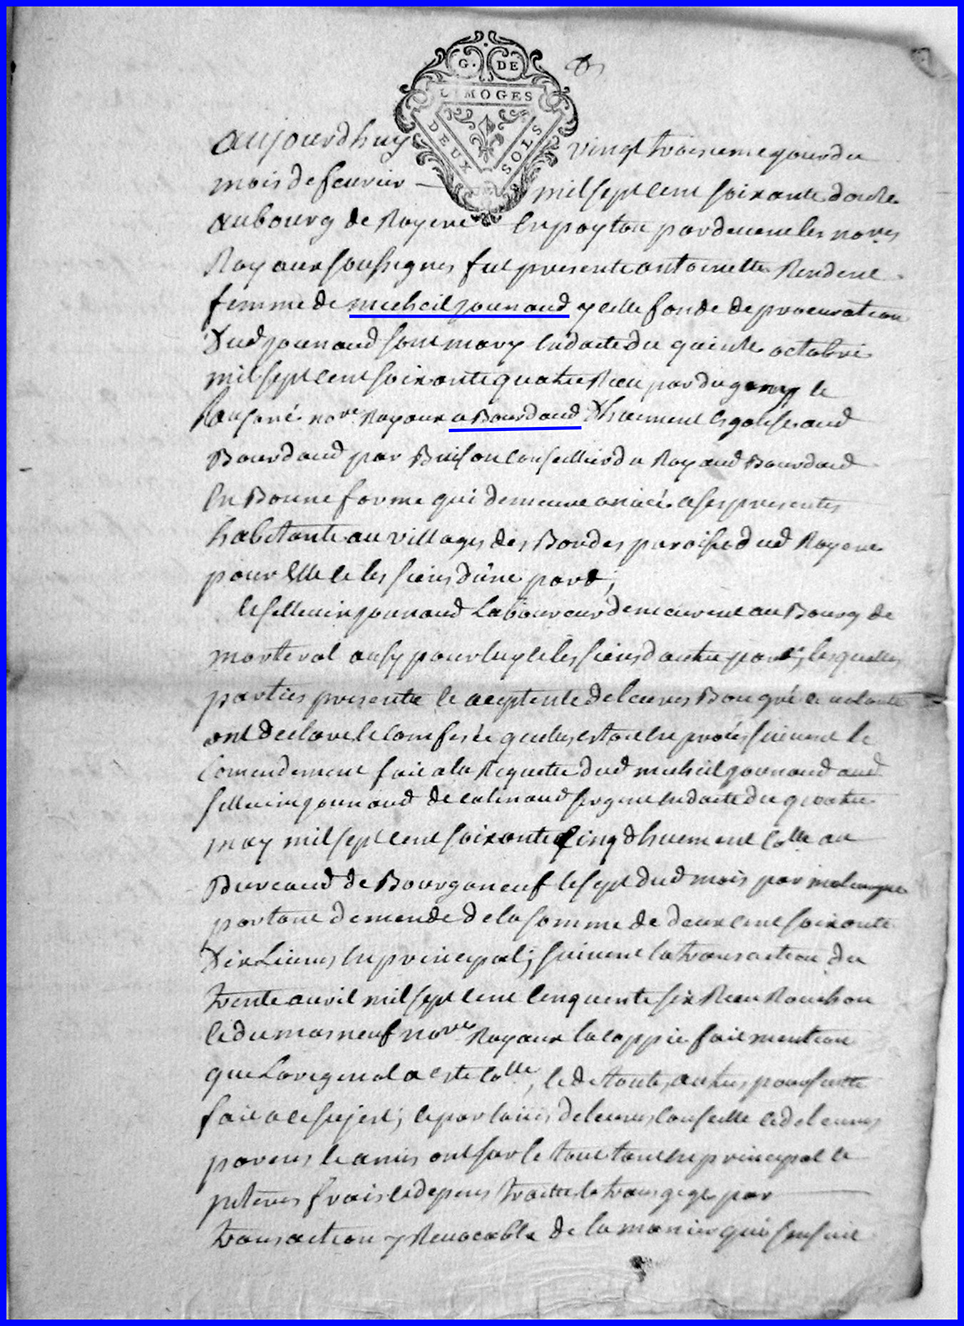 G. DE
LIMOGES
DEUX SOLS
aujourdhuy vingt troisieme jour du
mois de fevrier mil sept cent soixante douze
au bourg de Royere en poytou pardevent les no.res
Royaux soussignes fut presente antoinette
femme de micheil jounaud ycelle fondé de procuration
dud jounaud sont mary en datte du quinze octobre
mil sept cent soixante quatre Recu par dugeny le
no.re Royaux a Bourdaud
Bourdaud par Buisson conseillier du Roy aud Bourdaud
en Bonne forme qui demeure anacé a ses presentes
habitante au village des Bordes paroisse dud Royere
pour Elle et les siens d'une part,
et sillevin jounaud Laboureur demeurent au Bourg de
morterol ausy pour luy et les siens d'autre part, lesquelles
parties presente et aceptente de leurs Bon gré et volonté
ont declare et confesse quelles etoit en proces suivent le
comendement fait a la Requette dud micheil jounaud aud
sillevin jounaud de en datte du quatre
may mil sept cent soixante cinq dhuement collé au
Bureaud de Bourganeuf le sept dud mois par
portant demende de la somme de deux cent soixante
dix Livres en principal; suivent la transaction du
trente avril mil sept cent cinquente six Recu Rouchon
et dumasneuf no.res Royaux la coppie fait mention
que Loregenal a este collé, et de toutes autres poursuitte
fait a ce sujest; et par lavis de leures conseille et de leures
parens et amis ont sur le tout tant en principal et
interes frais et depens traitte et transige par
transaction yrevocable de la manier qui sensuit